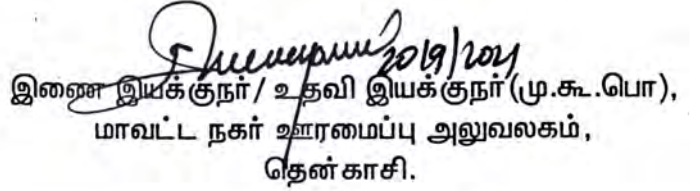 20/9/2021
இணை இயக்குநர்/ உதவி இயக்குநர்(மு.கூ.பொ),
மாவட்ட நகர் ஊரமைப்பு அலுவலகம்,
தென்காசி.